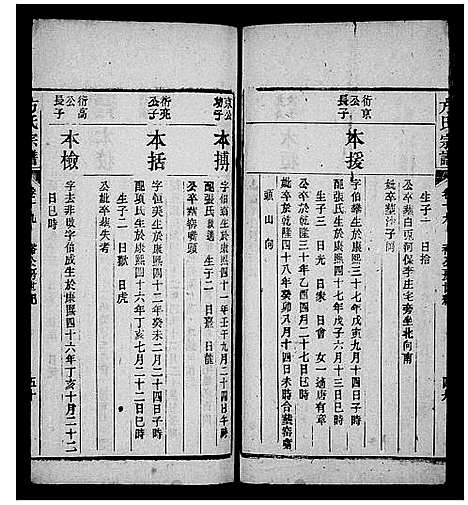 方氏宗譜
生子一 日拾
公卒葬白豆河保李庄宅旁坐北向南
衍京公長子
本援
字伯攀生於康熙三十七年戊寅九月十四日時
配張氏生於康熙四十七年戊子六月十三日巳時
生子三 日光 日家 日會 女一適唐有章
公卒於乾隆三十年乙酉四月二十七日時葬
妣卒於乾隆四十八年癸卯八月十四日未時合葬窑嘴
頭山向
四九
方氏宗譜
京公 子
本搏
字伯 生於康熙四十一年壬午九月二十四日午時
配張氏 生子二 日 日能
公卒葬窑嘴頭
衍亮公子
本括
字恒英生於康熙四十二年癸未二月二十四日子時
配項氏生於康熙四十六年丁亥七月二十二日巳時
生子二 日獻 日虎
公妣卒葬失考
衍高公長子
本檢
字去非改字伯成生於康熙四十六年丁亥十月二十二
日巳時
五十